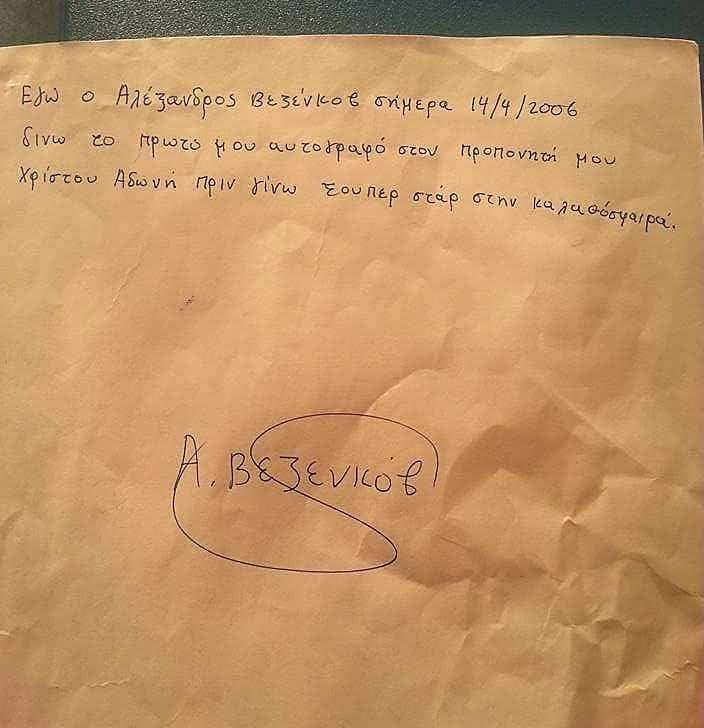 Εγώ ο Αλέξανδρος Βεζένκοβ σήμερα 14/4/2006
δινω το πρωτό μου αυτογραφό στον προπονητή μου
Χρίστου Αδωνή πριν γίνω ξουπερ στάρ στην καλαθόσφαιρά.
Α. Βεζενκόβ